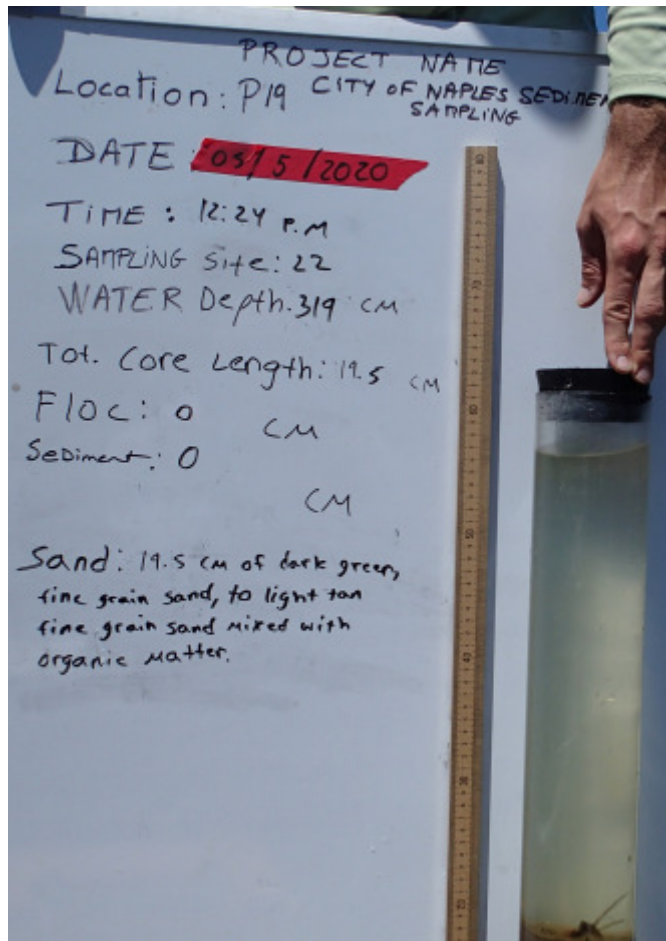 PROJECT NAME
CITY OF NAPLES SEDIMEN
SAMPLING
Location: P19
DATE: 05/5/2020
TIME: 12:24 P.M
SAMPLING Site: 22
WATER Depth. 319 CM
Tot. Core Length: 19.5 CM
Floc: 0 CM
Sediment: 0 CM
Sand: 19.5 CM of dark green,
fine grain sand, to light tan
fine grain sand mixed with
organic matter.
80
70
60
50
40
30
20